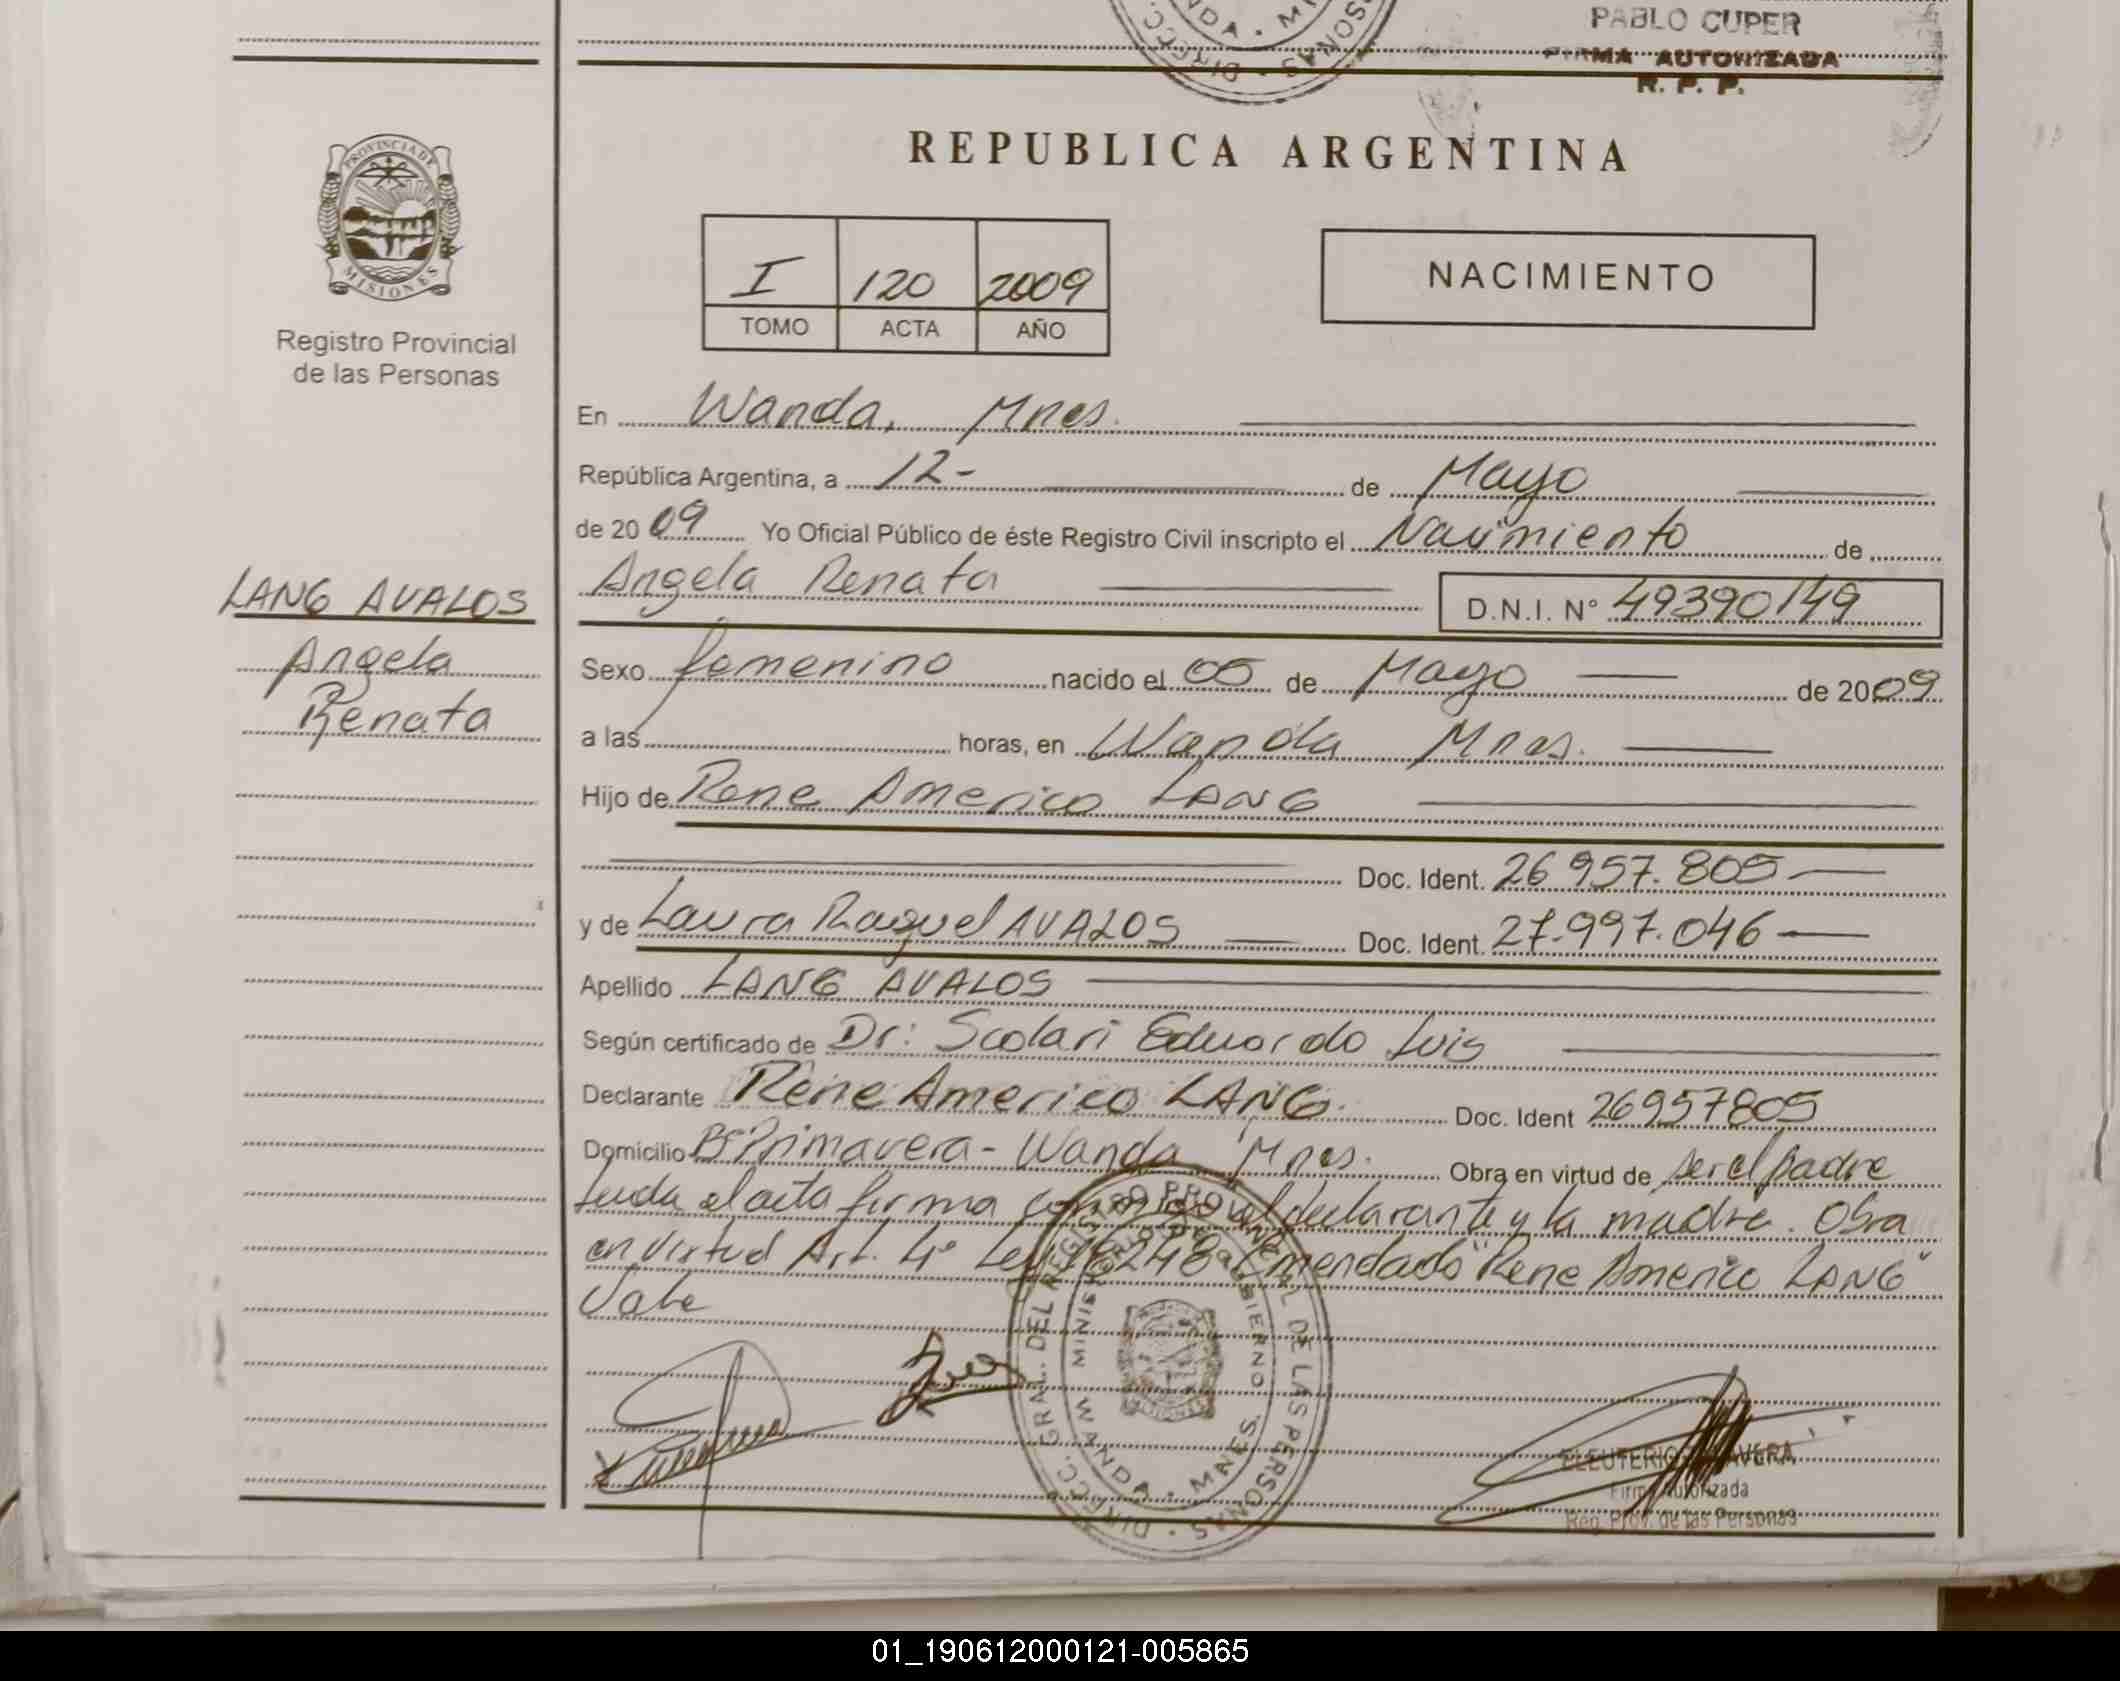 PABLO CUPER
FIRMA AUTORIZADA
R. P. P.
PROVINCIA DE
MISIONES
Registro Provincial
de las Personas
LANG AVALOS
Angela
Renata
REPUBLICA ARGENTINA
I 120 2009
TOMO ACTA AÑO
NACIMIENTO
En Wanda, Mnes.
República Argentina, a 12- de Mayo
de 2009 Yo Oficial Público de éste Registro Civil inscripto el Nacimiento de
Angela Renata D.N.I. N° 49390149
Sexo femenino nacido el 05 de Mayo de 2009
a las horas, en Wanda Mnes.
Hijo de Rene Americo LANG
Doc. Ident. 26957.805
y de Laura Raquel AVALOS Doc. Ident. 27.997.046
Apellido LANG AVALOS
Según certificado de Dr: Scolari Eduardo Luis
Declarante Rene Americo LANG. Doc. Ident 26957805
Domicilio B° Primavera - Wanda Mnes. Obra en virtud de ser el padre
el acta firma declarante y la madre. Obra
en virtud Art. 4° Ley 18248 Emendado "Rene Americo LANG"
Vale
DIRECC. GRAL. DEL REGISTRO PROVINCIAL DE LAS PERSONAS
MINISTERIO DE GOBIERNO
WANDA - MNES.
ELEUTERIO
Firma Autorizada
Reg. Prov. de las Personas
01_190612000121-005865